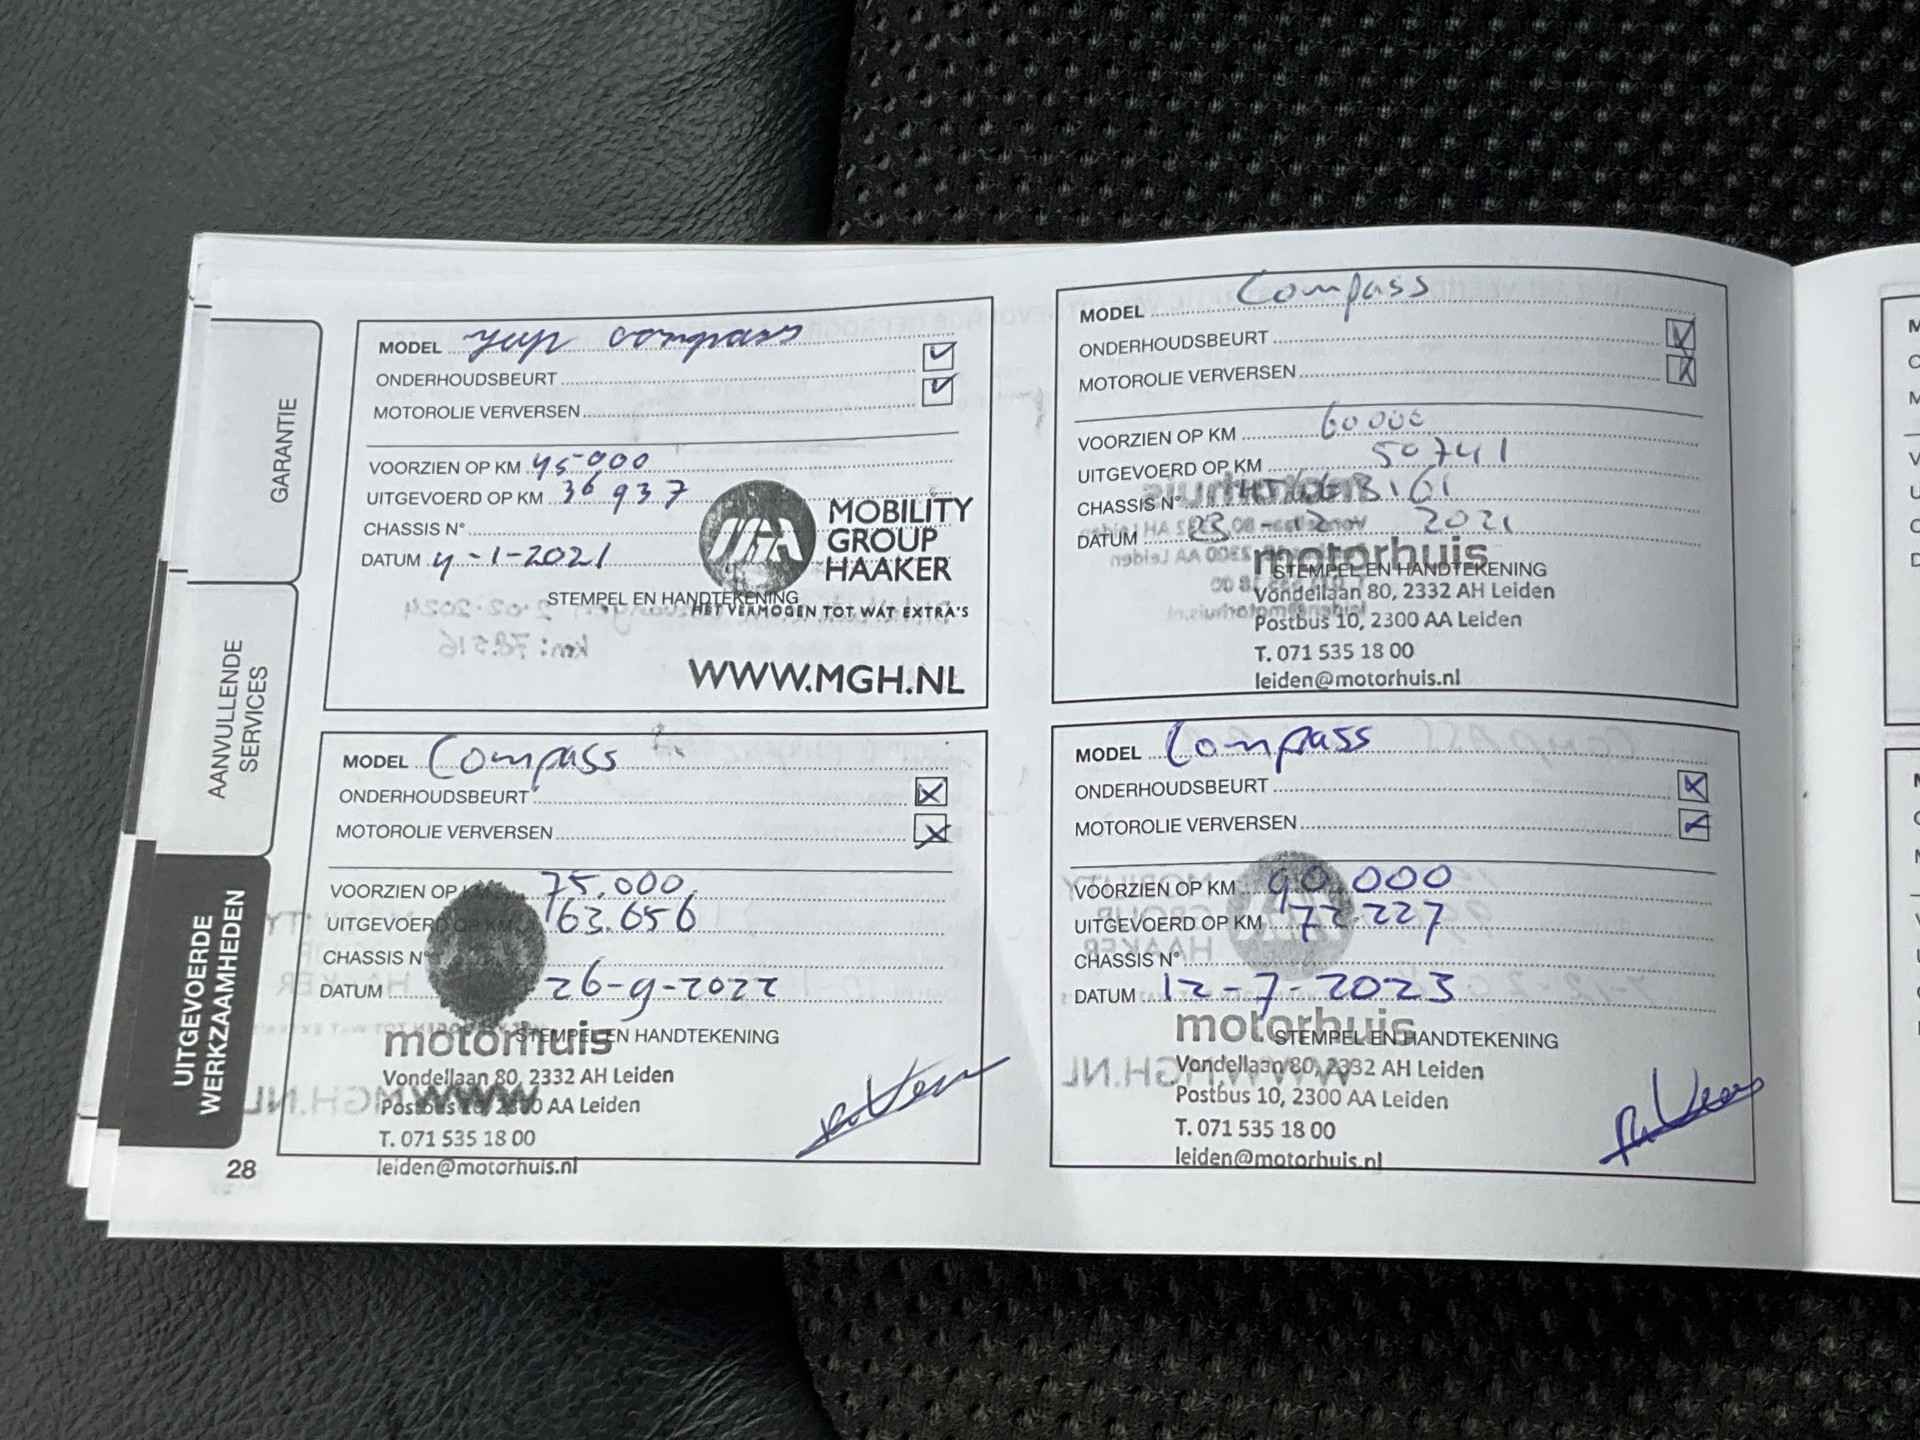 GARANTIE
AANVULLENDE
SERVICES
UITGEVOERDE
WERKZAAMHEDEN
28
MODEL jeep compass
ONDERHOUDSBEURT
MOTOROLIE VERVERSEN
VOORZIEN OP KM 45.000
UITGEVOERD OP KM 36937
CHASSIS N°
DATUM 4-1-2021
MOBILITY
GROUP
HAAKER
STEMPEL EN HANDTEKENING
HET VERMOGEN TOT WAT EXTRA'S
WWW.MGH.NL
MODEL Compass
ONDERHOUDSBEURT
MOTOROLIE VERVERSEN
VOORZIEN OP KM 60000
UITGEVOERD OP KM 50741
CHASSIS N°
DATUM 23-12 2021
motorhuis
STEMPEL EN HANDTEKENING
Vondellaan 80, 2332 AH Leiden
Postbus 10, 2300 AA Leiden
T. 071 535 18 00
leiden@motorhuis.nl
MODEL Compass
ONDERHOUDSBEURT
MOTOROLIE VERVERSEN
VOORZIEN OP KM 75.000
UITGEVOERD OP KM 63.656
CHASSIS N°
DATUM 26-9-2022
motorhuis
STEMPEL EN HANDTEKENING
Vondellaan 80, 2332 AH Leiden
Postbus 10, 2300 AA Leiden
T. 071 535 18 00
leiden@motorhuis.nl
MODEL Compass
ONDERHOUDSBEURT
MOTOROLIE VERVERSEN
VOORZIEN OP KM 90.000
UITGEVOERD OP KM 72.227
CHASSIS N°
DATUM 12-7-2023
motorhuis
STEMPEL EN HANDTEKENING
Vondellaan 80, 2332 AH Leiden
Postbus 10, 2300 AA Leiden
T. 071 535 18 00
leiden@motorhuis.nl